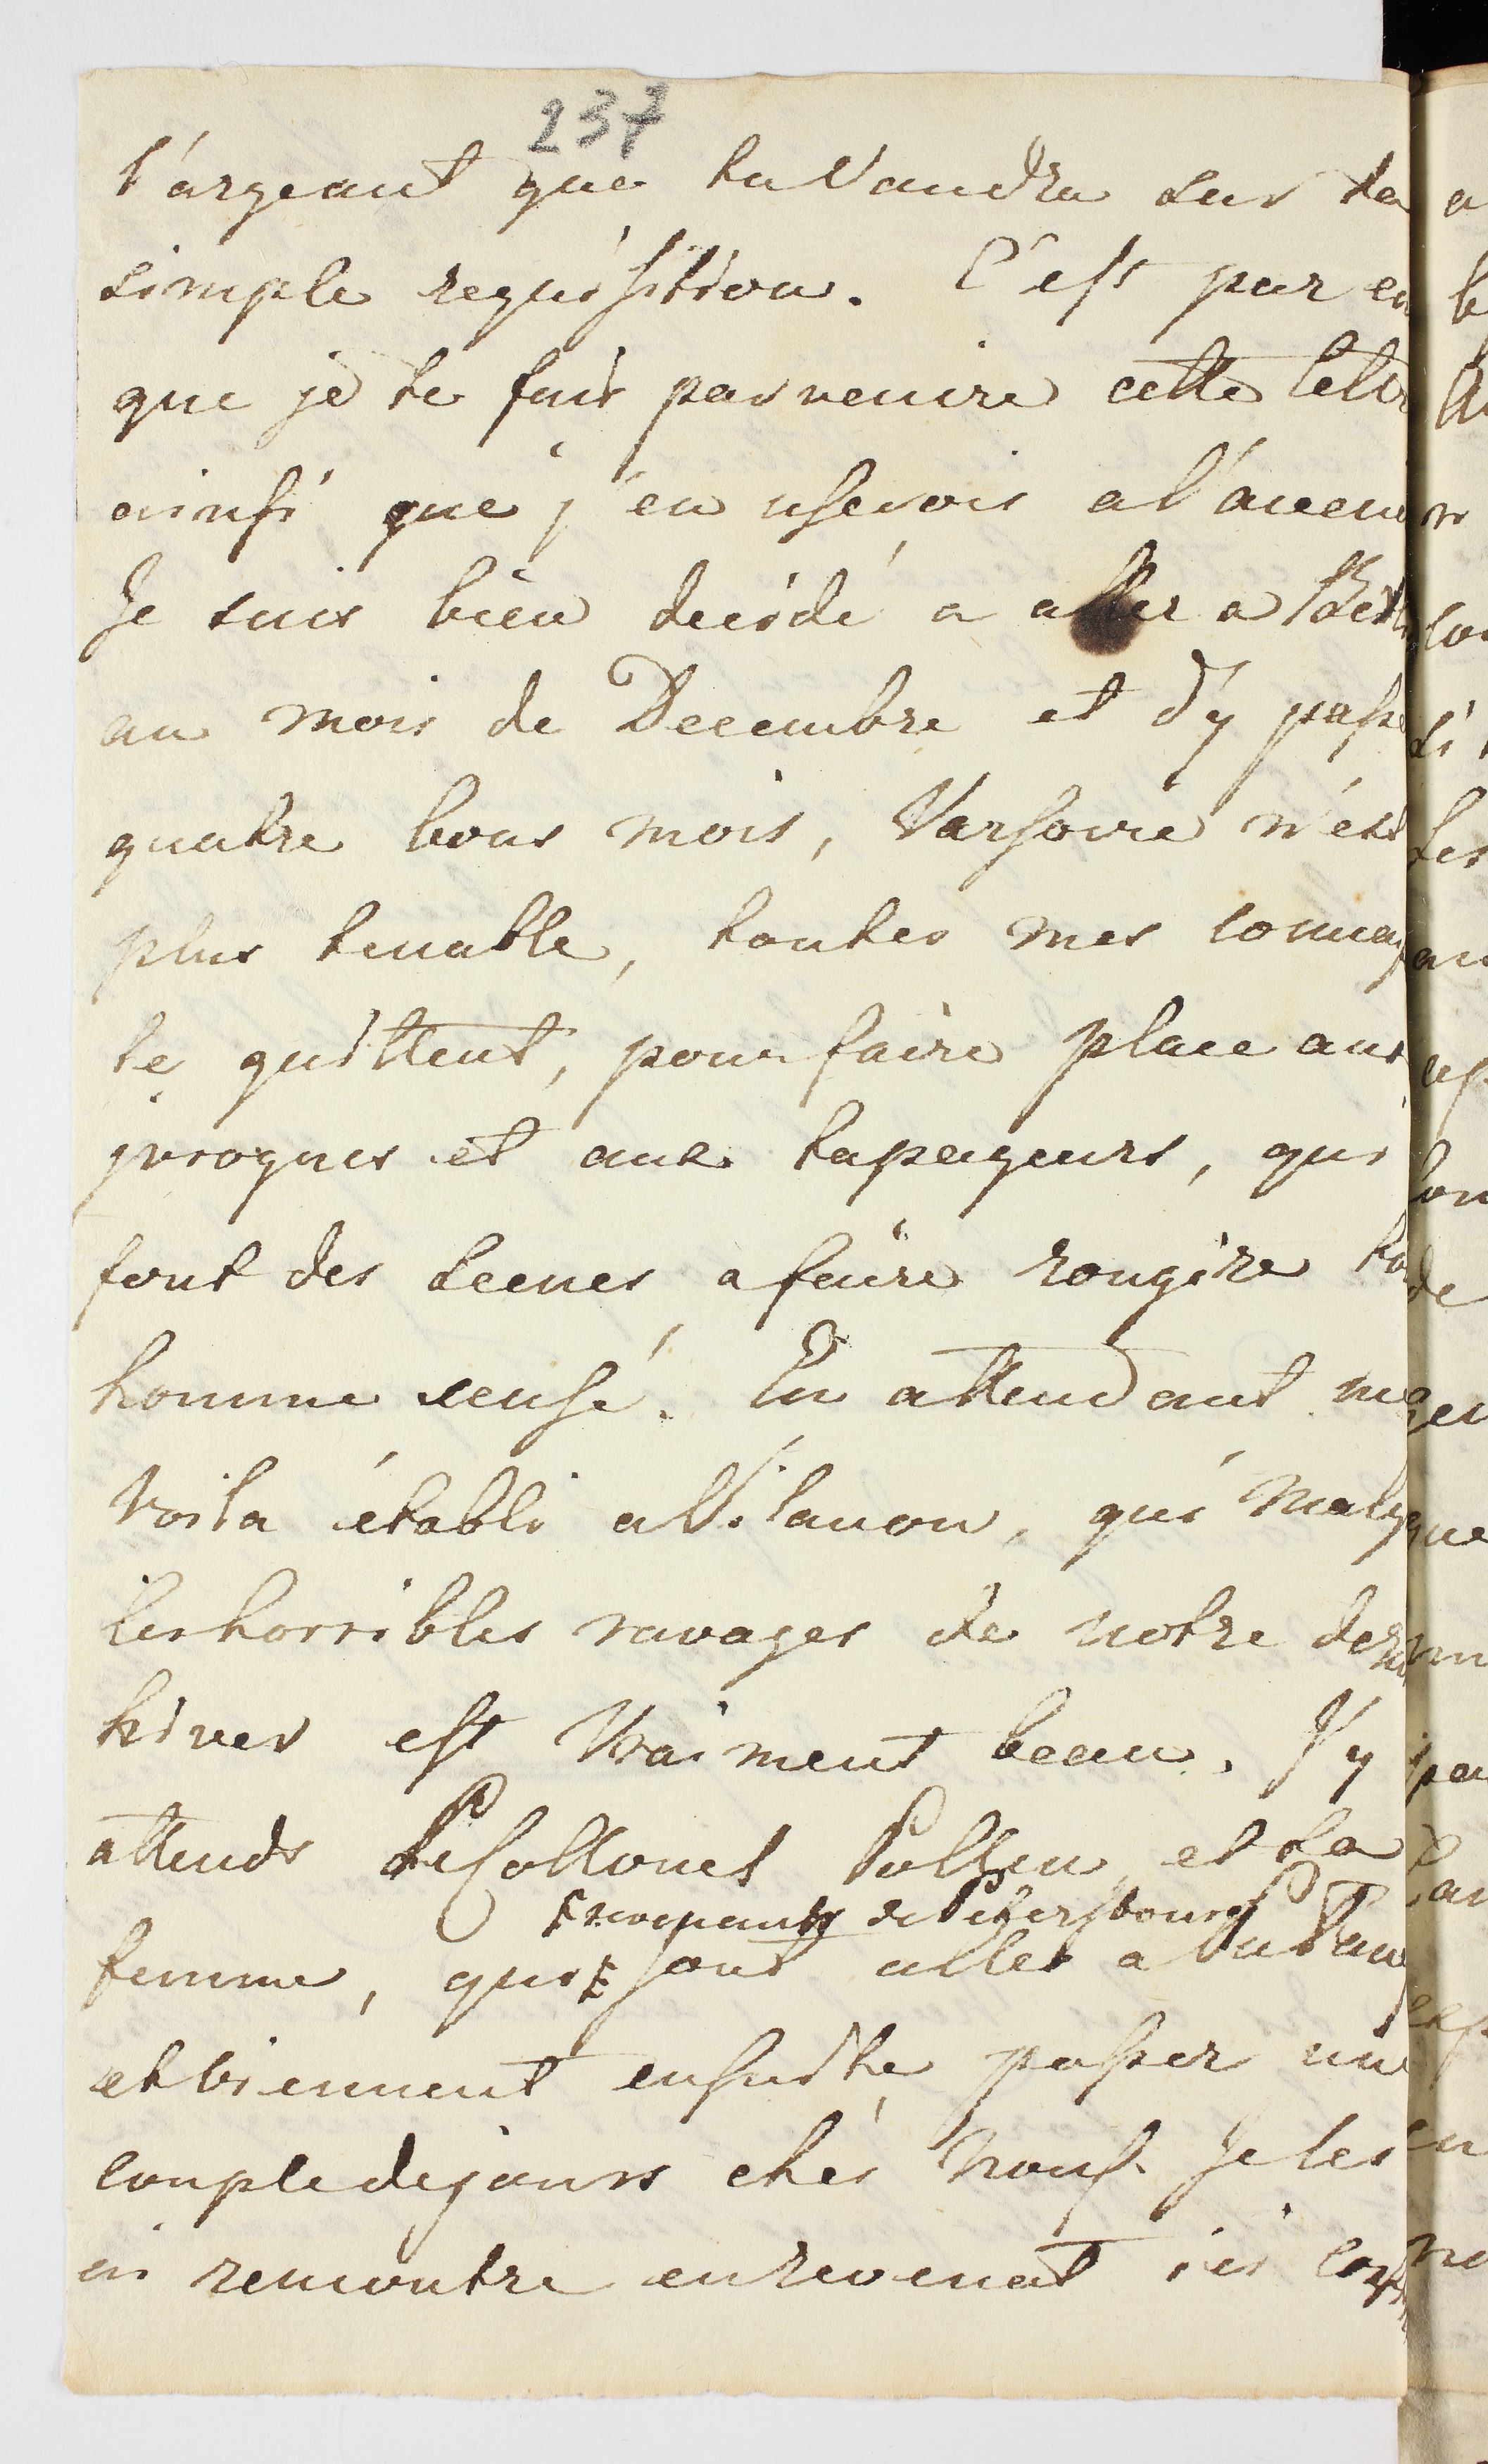 237
l'argeant que tu Vaudra sur ta
simple requisition. C'est par eu
que je te fais parvenire cette lettr
ainsi que j'en userois a l'aveni
Je suis bien decidé a aller a Berl
au mois de Decembre et d'y passe
quatre bons mois, Varsovie n'est
plus tenable, toutes mes connay
le quittent, pour faire place aux
jvrognes et aux tapageurs, qui
font des scenes a faire rougire to
homme censé. En attendant me
voila établi a Vilanov, qui Malg
les horribles ravages de notre derni
hiver est Vraiment beau. J'y
attends Le Collonel Pollen et sa
revenants de Petersbourg
femme, qui sont allés a
et viennent ensuitte passer une
couple de jours chés Nous. Je les
ai rencontre en revenat ici